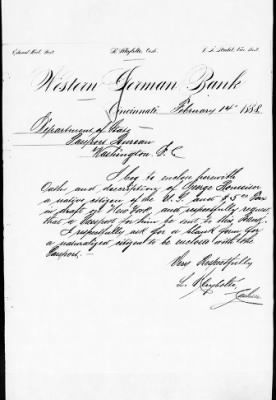 Western German Bank
Cincinnati, February 14th 1888.
Department of State
Passport Bureau
Washington D.C
I beg to enclose herewith
Oath and description of George
a native citizen of the U.S. and $5.00
in draft of New York and respectfully request
that a Passport for him be sent to this Bank.
I respectfully ask for a blank form for
a naturalized citizen to be enclosed with the
Passport.
Very Respectfully
Cashier